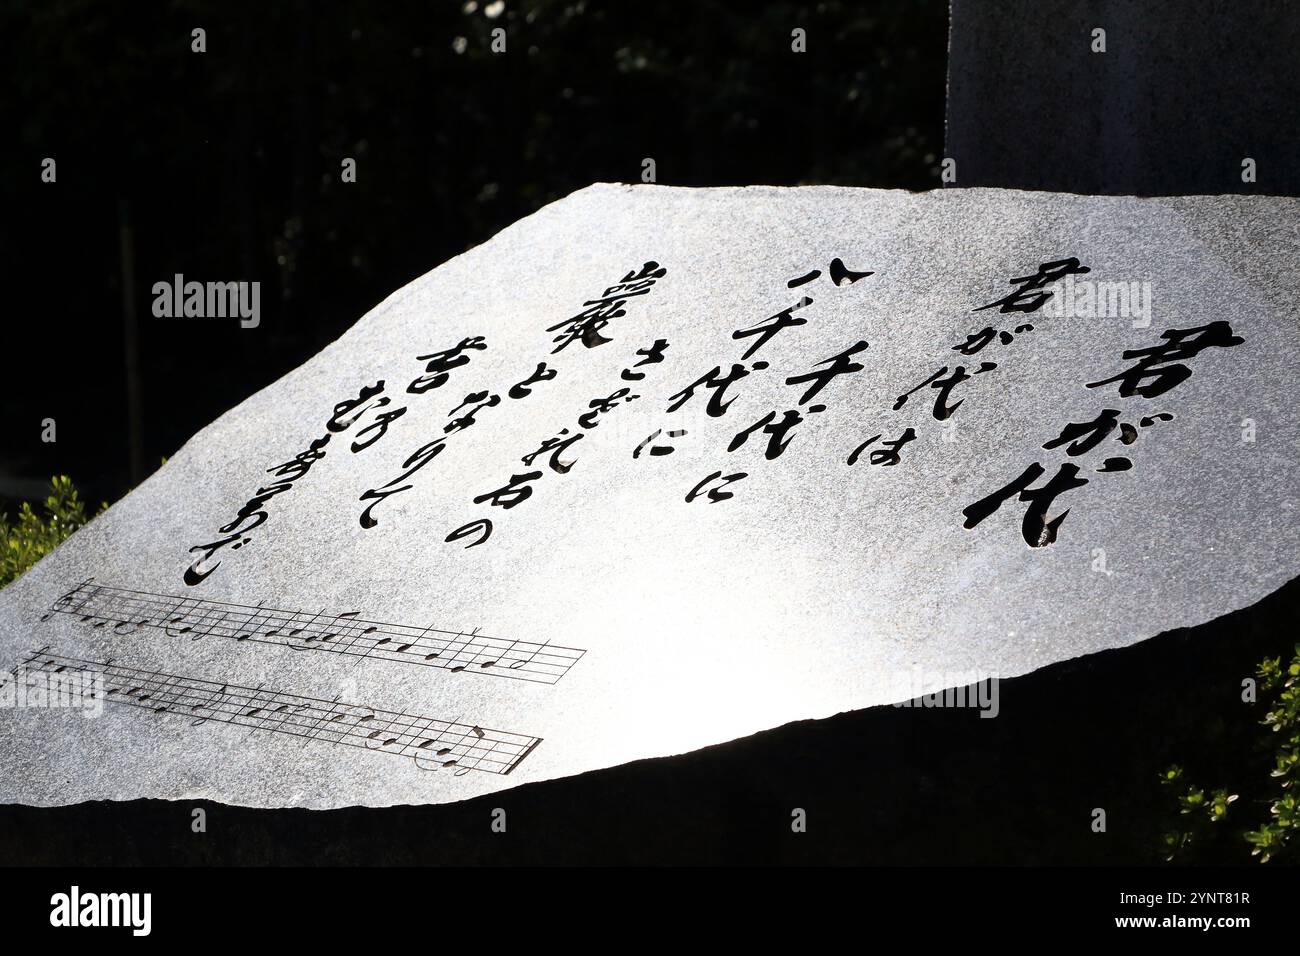 君が代
君が代は
千代に
八千代に
さざれ石の
巌となりて
苔の
むすまで
alamy
Image ID: 2YNT81R
www.alamy.com